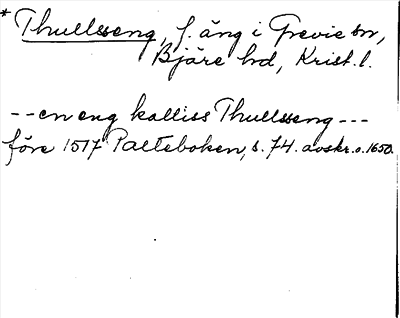 * Thullsseng, f. äng i Grevie sn,
Bjäre hd, Krist. l.
-- en eng kalliss Thullsseng ---
före 1517 Palteboken, s. 74. avskr. o. 1650.